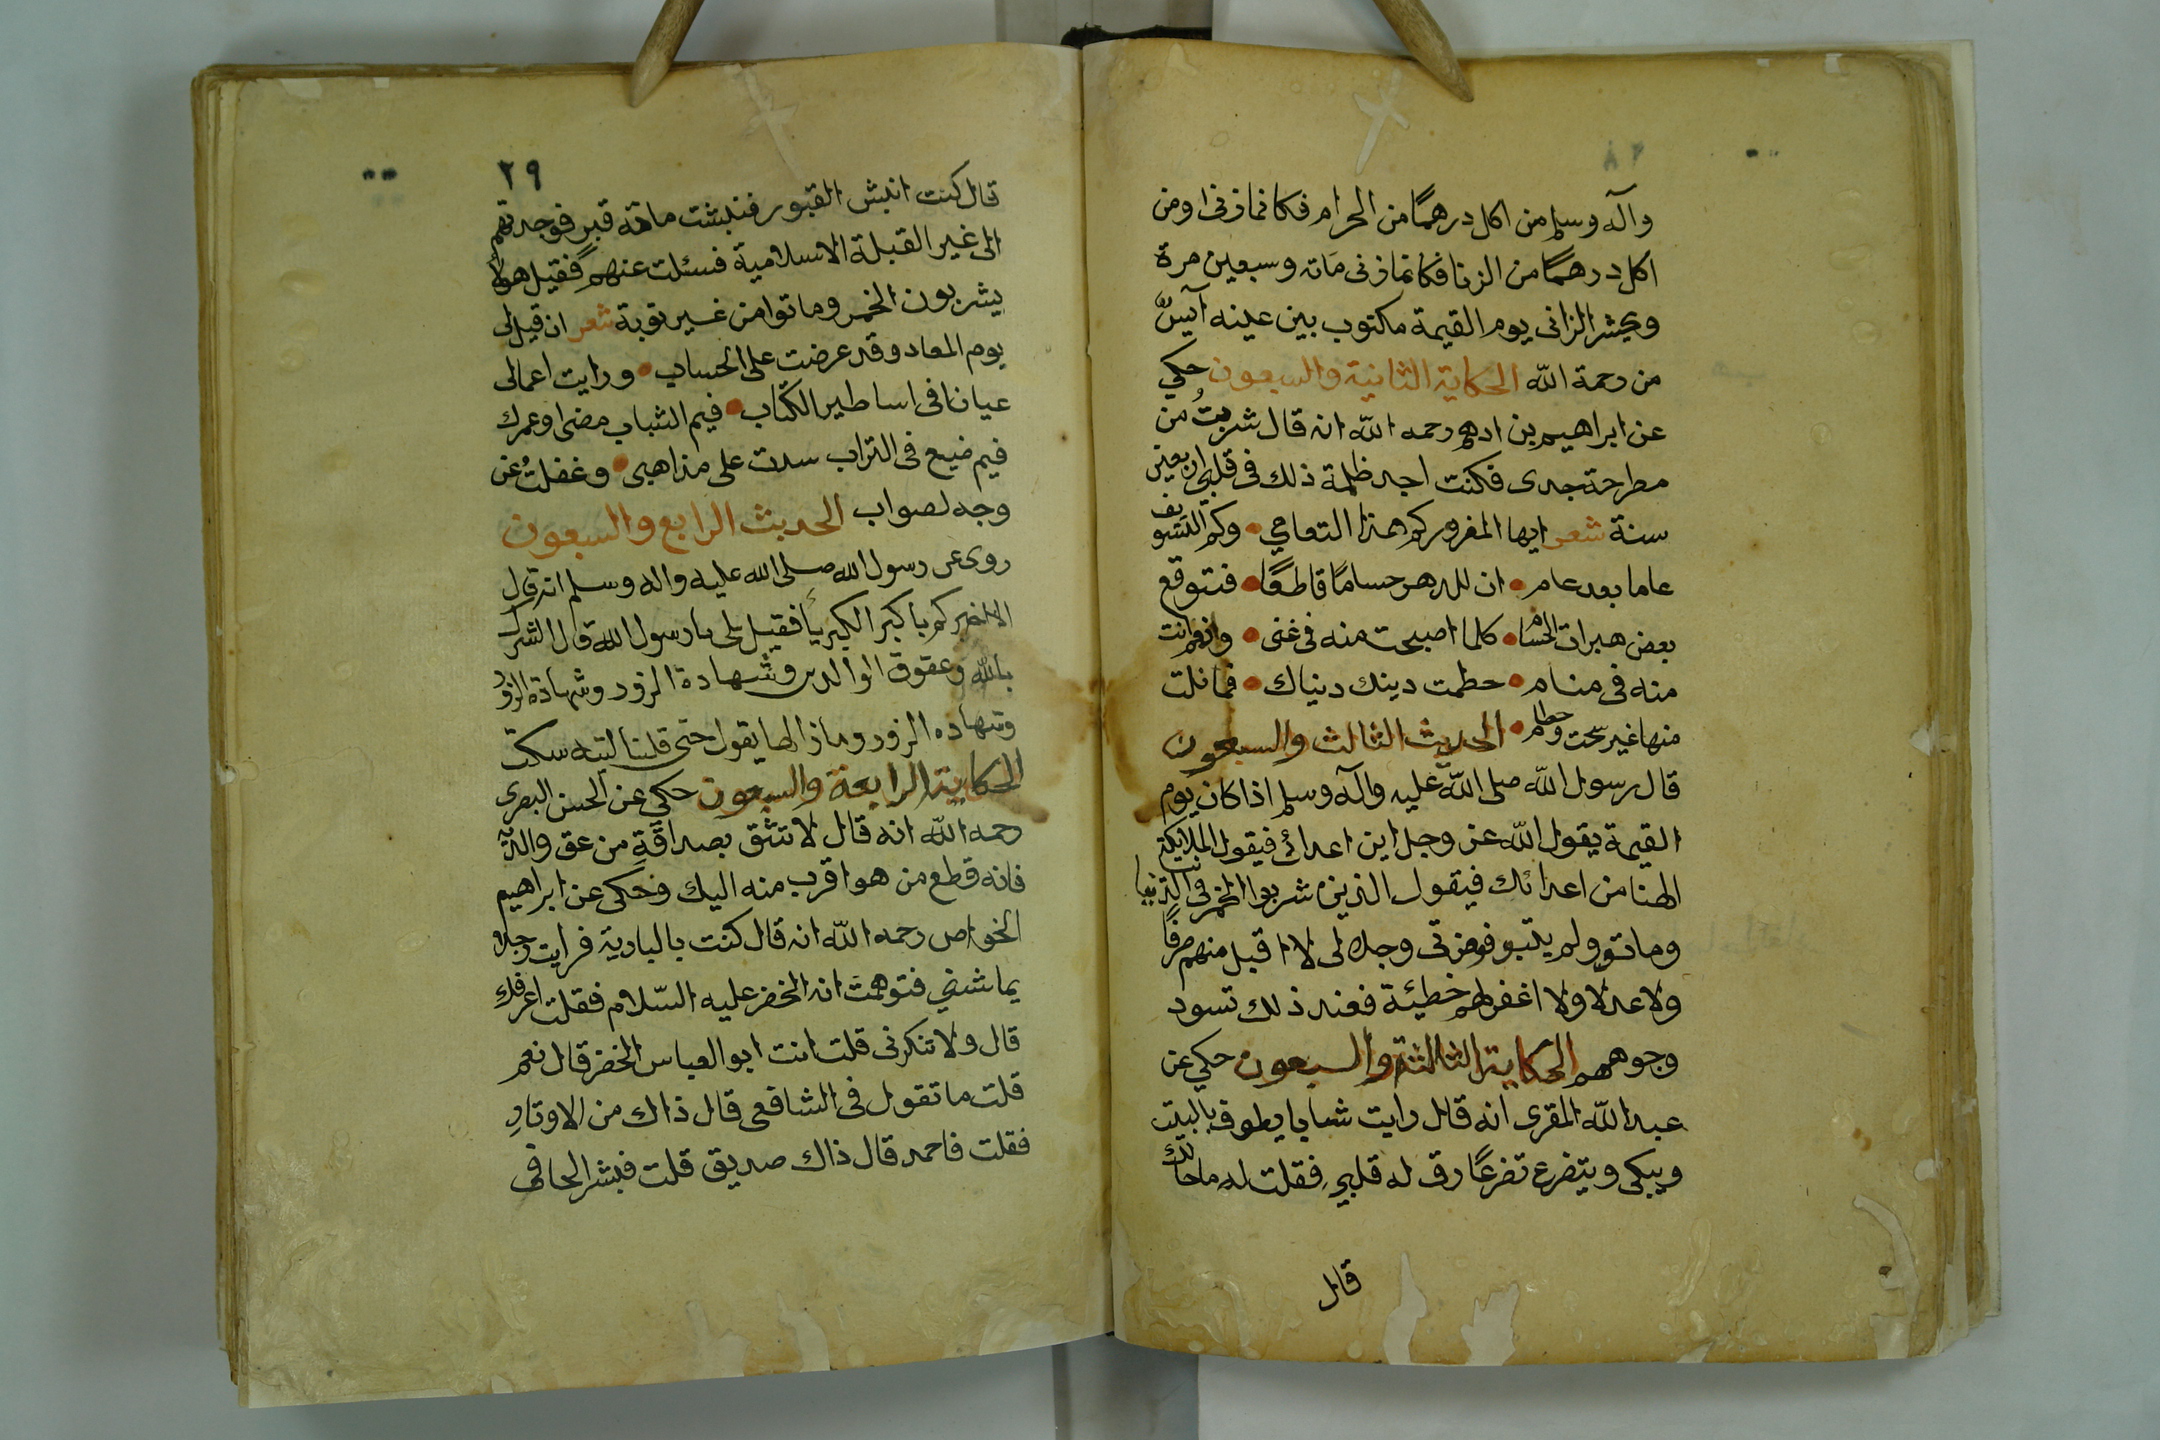 وآله وسلم من اكل درهمًا من الحرام فكانما زنى ومن
اكل درهمًا من الزنا فكانما زنى مَاته وسبعين مرة
ويحشر الزانى يوم القيمة مكتوب بين عينه آيسٌ
من رحمة الله الحكاية الثانية والسبعون حكي
عن ابراهيم بن ادهم رحمه الله انه قال شربتُ من
مطرحة جدى فكنت اجد ظلمة ذلك فى قلبى اربعين
سنة شعر ايها المغرور كم هذا التعامي • وكم التسويف
عاما بعد عام • ان للدهر حسامًا قاطعًا • فتوقع
بعض هبرات الحسام • كلما اصبحت منه فى غنى • وانهم انت
منه فى منام • حطمت دينك دنياك • فما نلت
منها غير سحت وحطام • الحديث الثالث والسبعون
قال رسول الله صلى الله عليه وآله وسلم اذا كان يوم
القيمة يقول الله عز وجل اين اعدائى فيقول الملايكة
الهنا من اعدائك فيقول الذين شربوا الخمر فى الدنيا
وماتو ولم يتبو فوعزتى وجلالى لا اقبل منهم صرفًا
ولا عدلا ولا اغفر لهم خطيئة فعند ذلك تسود
وجوههم الحكاية الثالثة والسبعون حكي عن
عبد الله المقرى انه قال رايت شابا يطوف بالبيت
ويبكى ويتضرع تضرعًا رق له قلبى فقلت له ما حالك
قال
٢٩
قال كنت انبش القبور فنبشت مائة قبر فوجدتهم
الى غير القبلة الاسلامية فسئلت عنهم فقيل هولا
يشربون الخمر وماتوا من غير توبة شعر ان قيل لى
يوم المعاد وقد عرضت على الحساب • ورايت اعمالى
عيانا فى اساطير الكتاب • فيم الشباب مضى وعمرك
فيم ضيع فى التراب سدت على مذاهبى • وغفلتُ عن
وجه لصواب الحديث الرابع والسبعون
روى عن رسول الله صلى الله عليه واله وسلم انه قال
الا اخبركم باكبر الكبريأ فقيل بلى يا رسول الله قال الشرك
بالله وعقوق الوالدين وشهادة الزور وشهادة الزور
وشهاده الزور وماذا لها يقول حتى قلنا ليته سكت
الحكاية الرابعة والسبعون حكي عن الحسن البصرى
رحمه الله انه قال لا تثق بصداقة من عق والديه
فانه قطع من هو اقرب منه اليك وحكى عن ابراهيم
الخواص رحمه الله انه قال كنت بالبادية فرايت رجلا
يماشنى فتوهمت انه الخضر عليه السّلام فقلت اعرفك
قال ولا تنكرنى قلت انت ابو العباس الخضر قال نعم
قلت ما تقول فى الشافعى قال ذاك من الاوتادِ
فقلت فاحمد قال ذاك صديق قلت فبشر الحافى